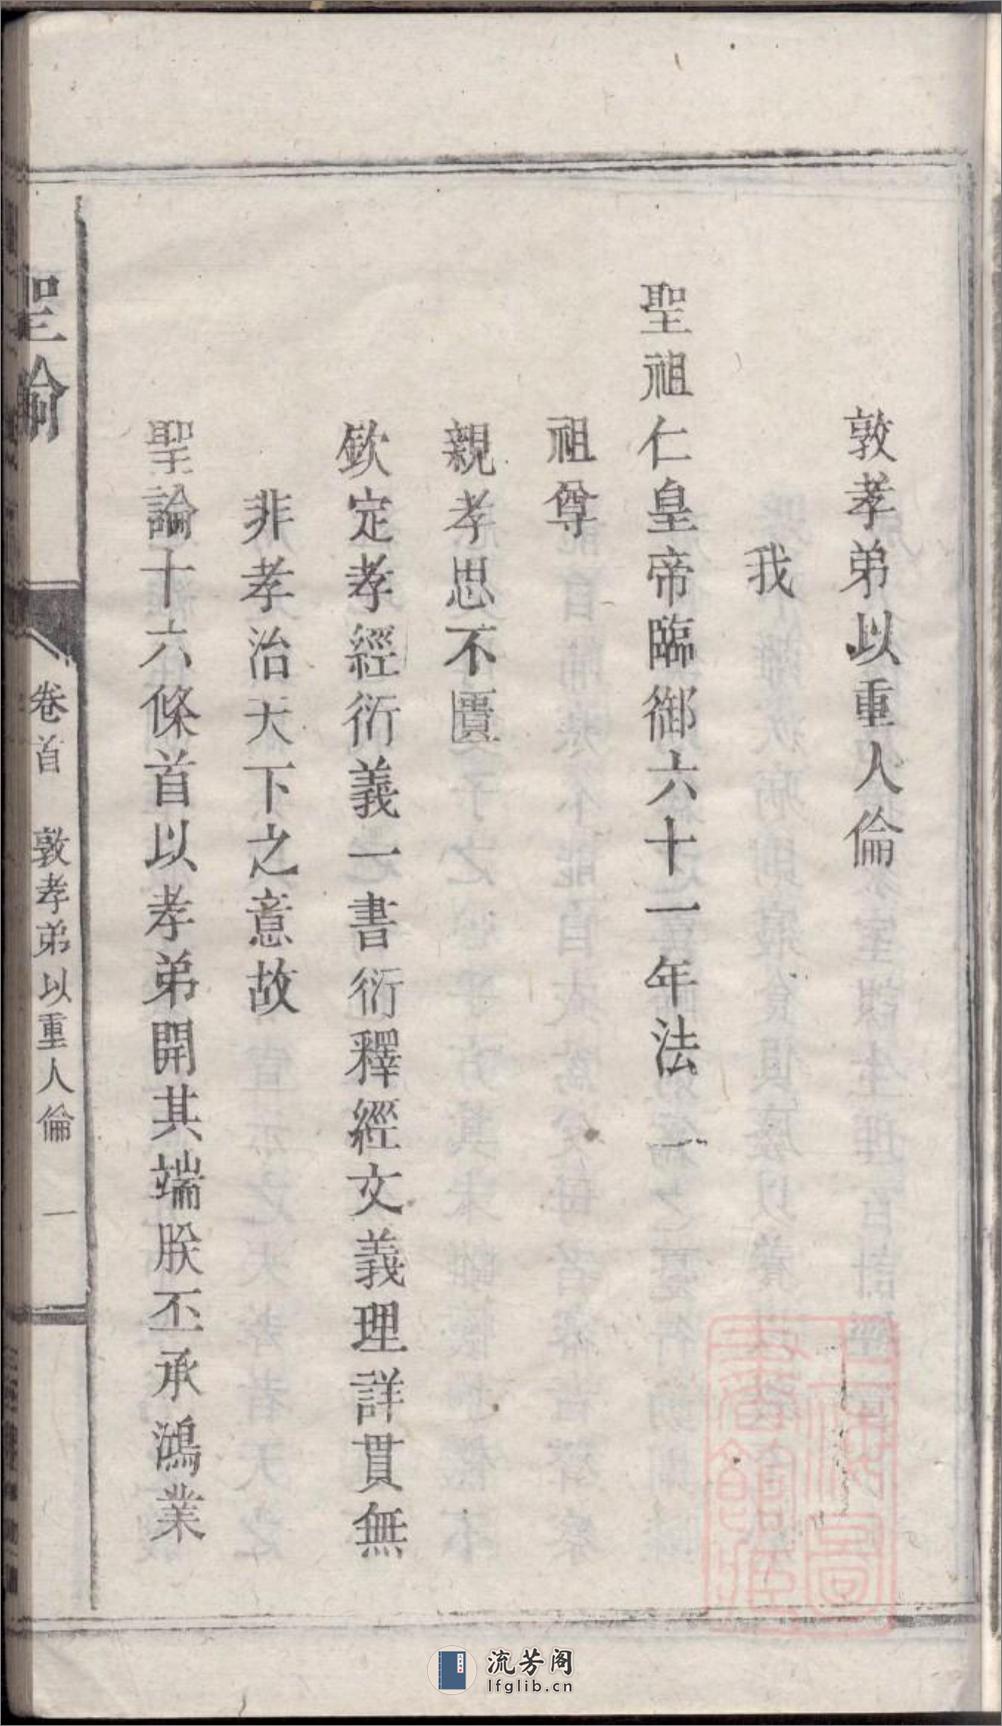 敦孝弟以重人倫
我
聖祖仁皇帝臨御六十一年法
祖尊
親孝思不匱
欽定孝經衍義一書衍釋經文義理詳貫無
非孝治天下之意故
聖諭十六條首以孝弟開其端朕丕承鴻業
聖諭
卷首 敦孝弟以重人倫 一
流芳阁
lfglib.cn